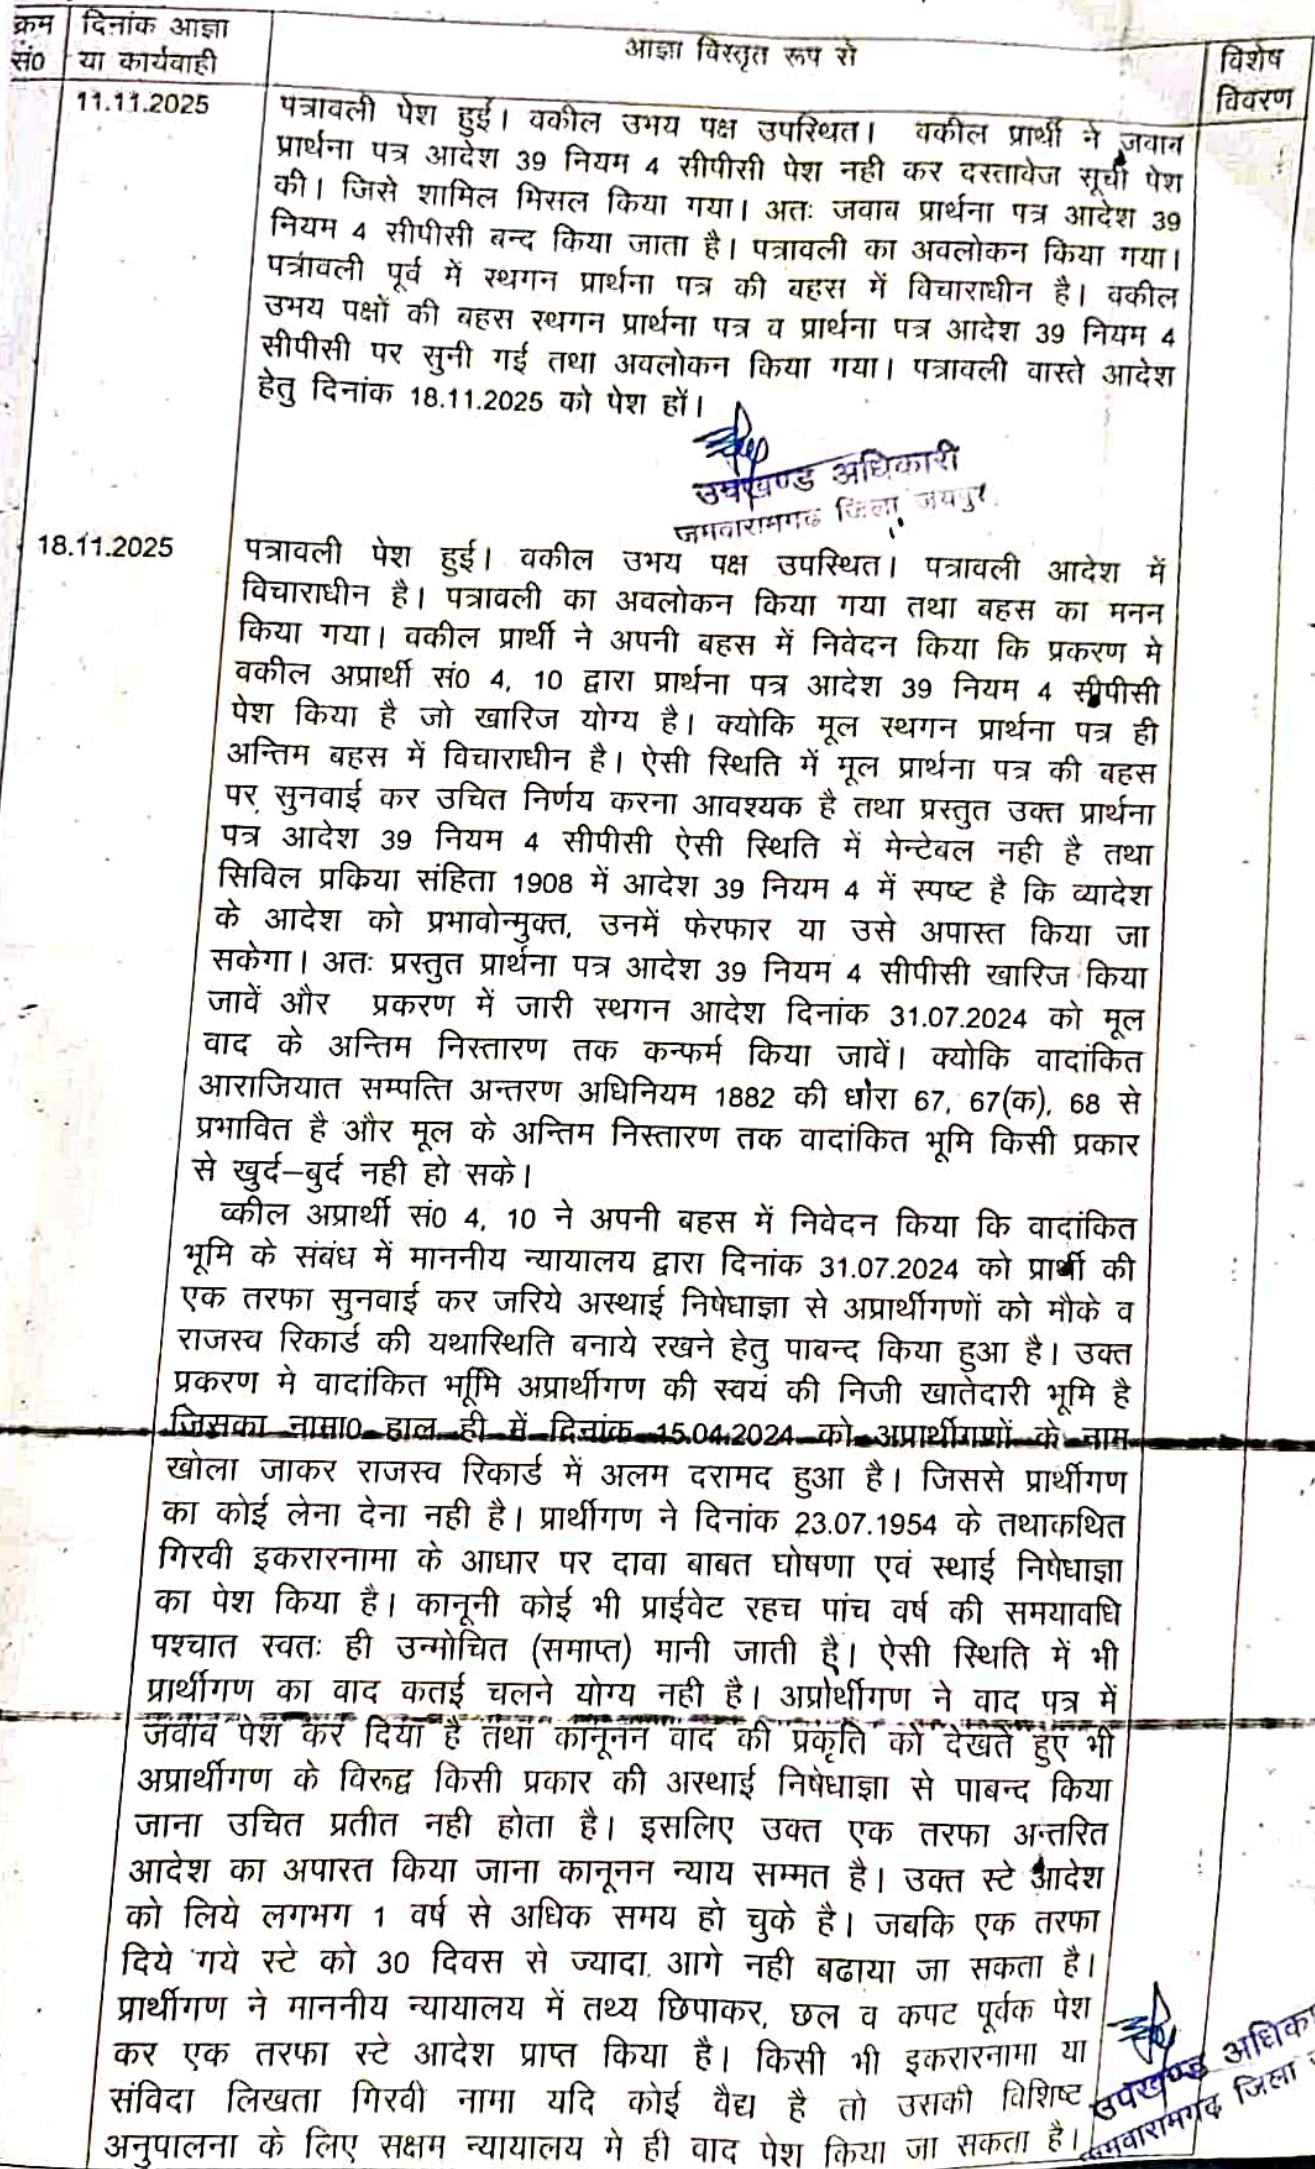 क्रम सं0
दिनांक आज्ञा या कार्यवाही
आज्ञा विस्तृत रूप से
विशेष विवरण
11.11.2025
पत्रावली पेश हुई। वकील उभय पक्ष उपस्थित। वकील प्रार्थी ने जवाब
प्रार्थना पत्र आदेश 39 नियम 4 सीपीसी पेश नही कर दस्तावेज सूची पेश
की। जिसे शामिल मिसल किया गया। अतः जवाब प्रार्थना पत्र आदेश 39
नियम 4 सीपीसी बन्द किया जाता है। पत्रावली का अवलोकन किया गया।
पत्रावली पूर्व में स्थगन प्रार्थना पत्र की बहस में विचाराधीन है। वकील
उभय पक्षों की बहस स्थगन प्रार्थना पत्र व प्रार्थना पत्र आदेश 39 नियम 4
सीपीसी पर सुनी गई तथा अवलोकन किया गया। पत्रावली वास्ते आदेश
हेतु दिनांक 18.11.2025 को पेश हों।
उपखण्ड अधिकारी
जमवारामगढ जिला जयपुर
18.11.2025
पत्रावली पेश हुई। वकील उभय पक्ष उपस्थित। पत्रावली आदेश में
विचाराधीन है। पत्रावली का अवलोकन किया गया तथा बहस का मनन
किया गया। वकील प्रार्थी ने अपनी बहस में निवेदन किया कि प्रकरण मे
वकील अप्रार्थी सं0 4, 10 द्वारा प्रार्थना पत्र आदेश 39 नियम 4 सीपीसी
पेश किया है जो खारिज योग्य है। क्योकि मूल स्थगन प्रार्थना पत्र ही
अन्तिम बहस में विचाराधीन है। ऐसी स्थिति में मूल प्रार्थना पत्र की बहस
पर सुनवाई कर उचित निर्णय करना आवश्यक है तथा प्रस्तुत उक्त प्रार्थना
पत्र आदेश 39 नियम 4 सीपीसी ऐसी स्थिति में मेन्टेबल नही है तथा
सिविल प्रकिया संहिता 1908 में आदेश 39 नियम 4 में स्पष्ट है कि व्यादेश
के आदेश को प्रभावोन्मुक्त, उनमें फेरफार या उसे अपास्त किया जा
सकेगा। अतः प्रस्तुत प्रार्थना पत्र आदेश 39 नियम 4 सीपीसी खारिज किया
जावें और प्रकरण में जारी स्थगन आदेश दिनांक 31.07.2024 को मूल
वाद के अन्तिम निस्तारण तक कन्फर्म किया जावें। क्योकि वादांकित
आराजियात सम्पत्ति अन्तरण अधिनियम 1882 की धारा 67, 67(क), 68 से
प्रभावित है और मूल के अन्तिम निस्तारण तक वादांकित भूमि किसी प्रकार
से खुर्द–बुर्द नही हो सके।
व्कील अप्रार्थी सं0 4, 10 ने अपनी बहस में निवेदन किया कि वादांकित
भूमि के संबंध में माननीय न्यायालय द्वारा दिनांक 31.07.2024 को प्रार्थी की
एक तरफा सुनवाई कर जरिये अस्थाई निषेधाज्ञा से अप्रार्थीगणों को मौके व
राजस्व रिकार्ड की यथास्थिति बनाये रखने हेतु पाबन्द किया हुआ है। उक्त
प्रकरण मे वादांकित भूमि अप्रार्थीगण की स्वयं की निजी खातेदारी भूमि है
जिसका नामा0 हाल ही में दिनांक 15.04.2024 को अप्रार्थीगणों के नाम
खोला जाकर राजस्व रिकार्ड में अलम दरामद हुआ है। जिससे प्रार्थीगण
का कोई लेना देना नही है। प्रार्थीगण ने दिनांक 23.07.1954 के तथाकथित
गिरवी इकरारनामा के आधार पर दावा बाबत घोषणा एवं स्थाई निषेधाज्ञा
का पेश किया है। कानूनी कोई भी प्राईवेट रहच पांच वर्ष की समयावधि
पश्चात स्वतः ही उन्मोचित (समाप्त) मानी जाती है। ऐसी स्थिति में भी
प्रार्थीगण का वाद कतई चलने योग्य नही है। अप्रोर्थीगण ने वाद पत्र में
जवाव पेश कर दिया है तथा कानूनन वाद की प्रकृति को देखते हुए भी
अप्रार्थीगण के विरूद्व किसी प्रकार की अस्थाई निषेधाज्ञा से पाबन्द किया
जाना उचित प्रतीत नही होता है। इसलिए उक्त एक तरफा अन्तरित
आदेश का अपास्त किया जाना कानूनन न्याय सम्मत है। उक्त स्टे आदेश
को लिये लगभग 1 वर्ष से अधिक समय हो चुके है। जबकि एक तरफा
दिये गये स्टे को 30 दिवस से ज्यादा आगे नही बढाया जा सकता है।
प्रार्थीगण ने माननीय न्यायालय में तथ्य छिपाकर, छल व कपट पूर्वक पेश
कर एक तरफा स्टे आदेश प्राप्त किया है। किसी भी इकरारनामा या
संविदा लिखता गिरवी नामा यदि कोई वैद्य है तो उसकी विशिष्ट
अनुपालना के लिए सक्षम न्यायालय मे ही वाद पेश किया जा सकता है।
उपखण्ड अधिका
जमवारामगढ़ जिला